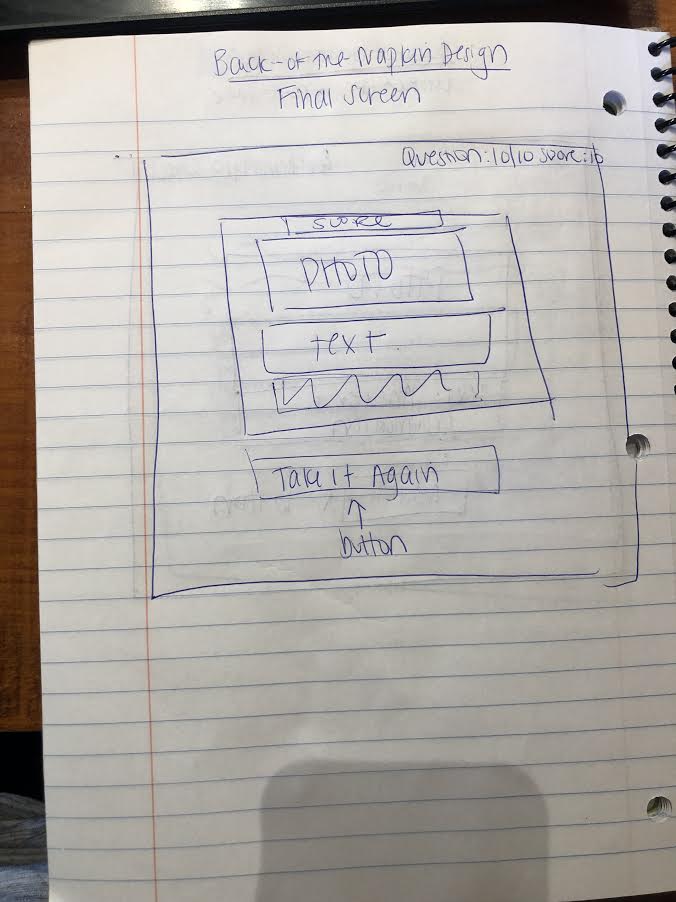 Back-of-the-Napkin Design
Final Screen
Question:10/10 score:10
score
PHOTO
text.
Take It Again
button